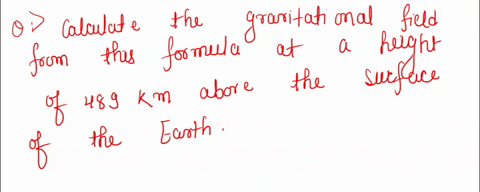 Q:> Calculate the gravitational field
from this formula at a height
of 489 km above the surface
of the Earth.